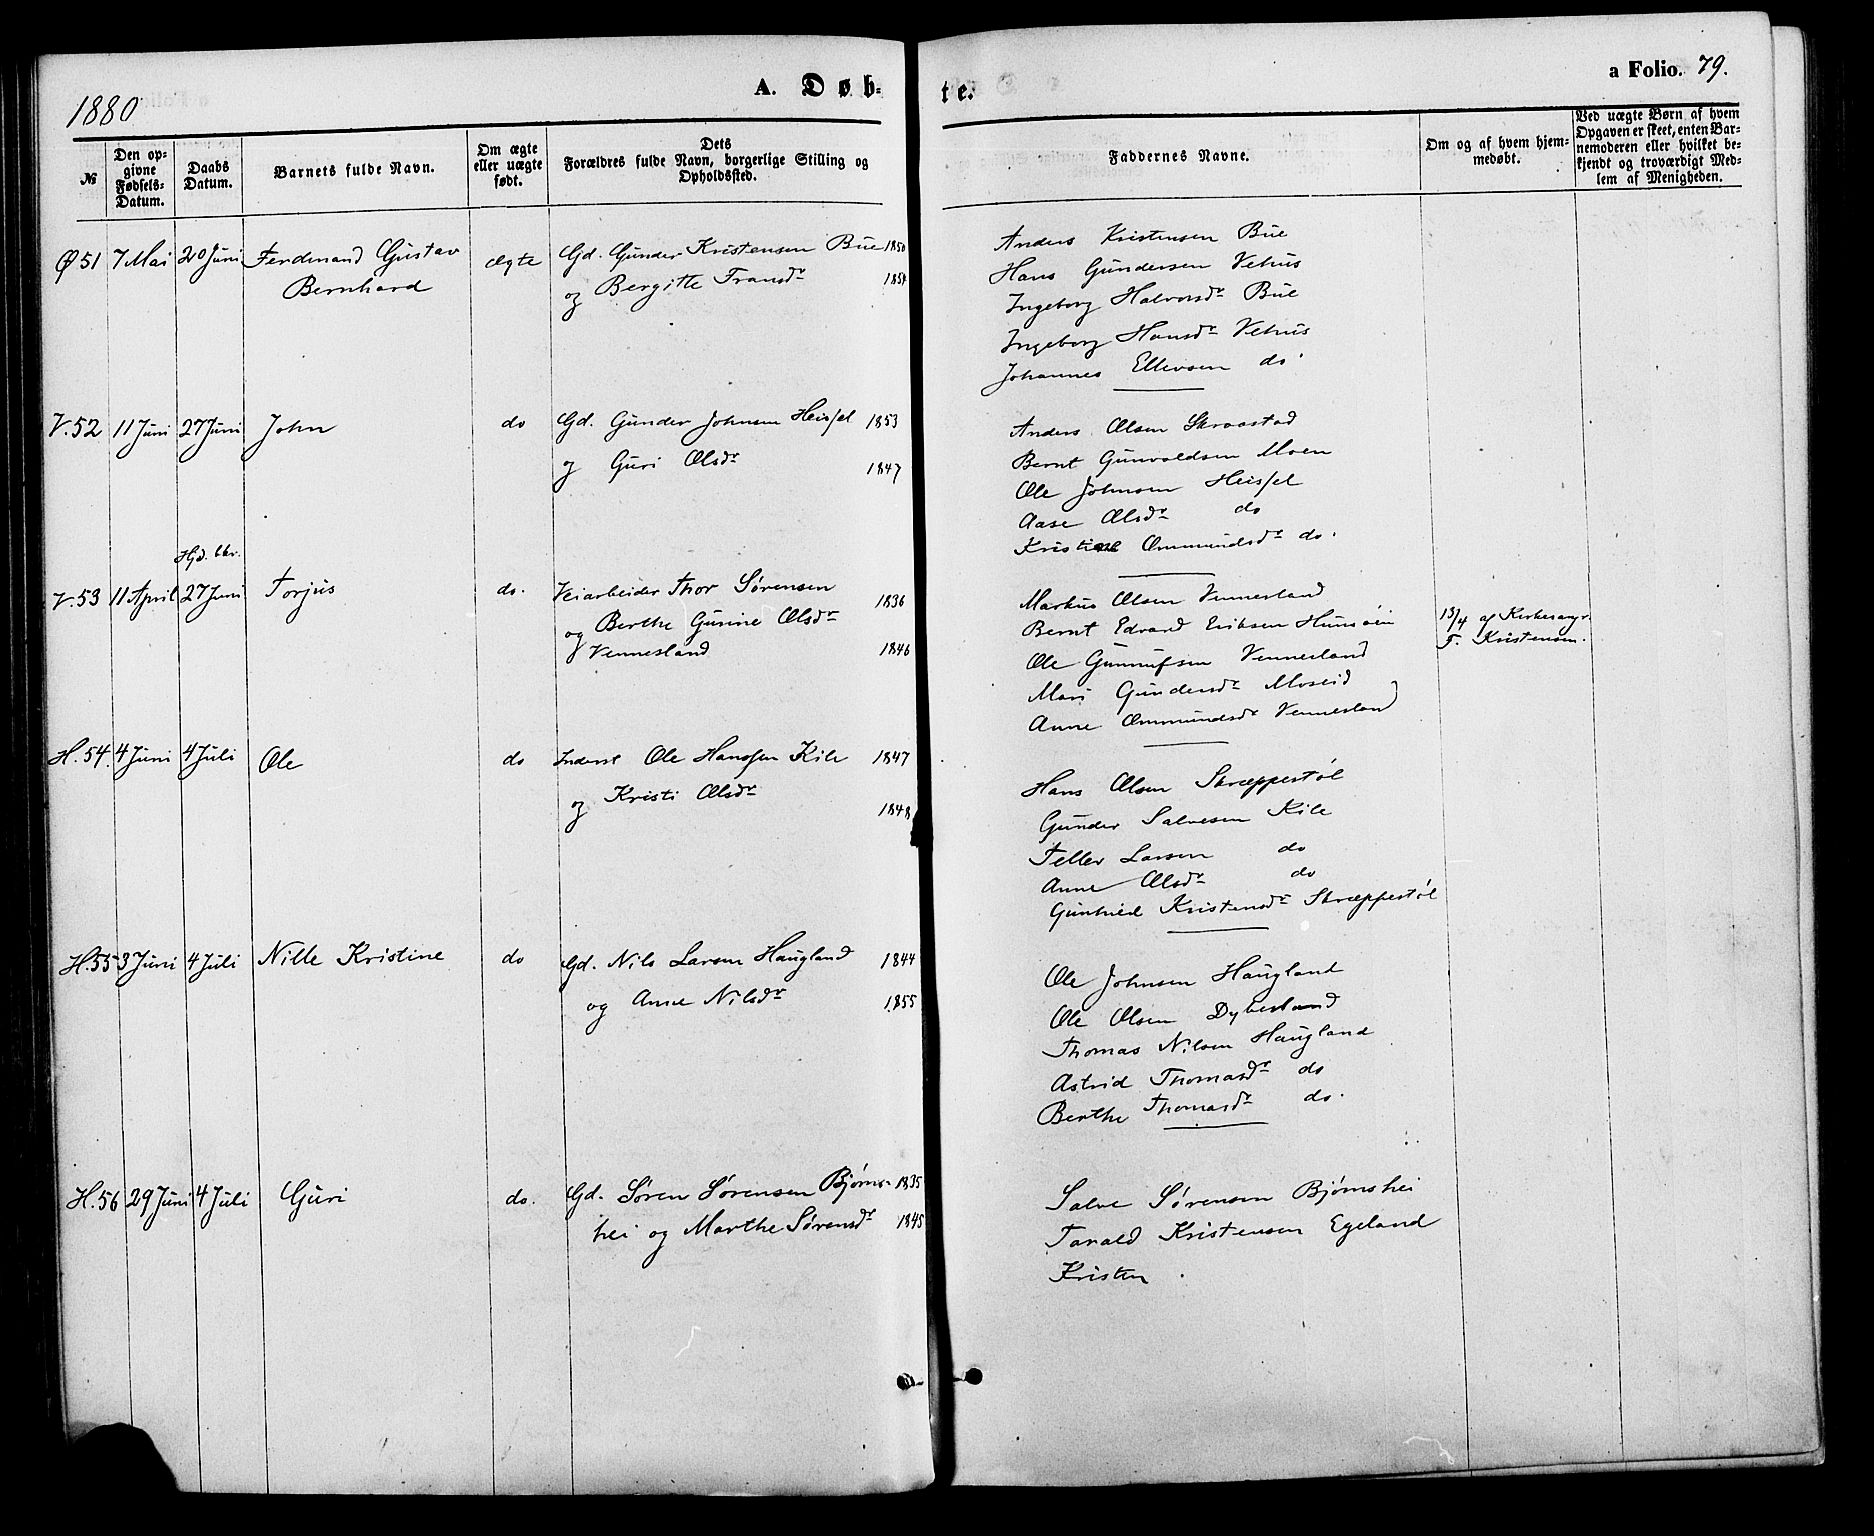 1880
A. Døb-
te.
a Folio. 79.
№
Den opgivne Fødsels-Datum.
Daabs Datum.
Barnets fulde Navn.
Om ægte eller uægte født.
Dets Forældres fulde Navn, borgerlige Stilling og Opholdssted.
Faddernes Navne.
Om og af hvem hjemmedøbt.
Ved uægte Børn af hvem Opgaven er skeet, enten Barnemoderen eller hvilket bekjendt og troværdigt Medlem af Menigheden.
Ø 51 7 Mai 20 Juni Ferdinand Gustav ægte Gd. Gunder Kristensen Bue 1850
Bernhard og Bergitte Fransdr 1854
Anders Kristensen Bue
Hans Gundersen Vehus
Ingeborg Halvorsdr Bue
Ingeborg Hansdr Vehus
Johannes Ellevsen do
V. 52 11 Juni 27 Juni John do Gd. Gunder Johnsen Heissel 1853
og Guri Olsdr 1847
Anders Olsen Skraastad
Bernt Gunvaldsen Moen
Ole Johnsen Heissel
Aase Olsdr do
Kristine Ommundsdr do.
Hjd. bkr.
V. 53 11 April 27 Juni Torjus do. Veiarbeider Thor Sørensen 1836
og Berthe Gurine Olsdr
Vennesland 1846
Markus Olsen Vennesland
Bernt Edvard Eriksen Hunsøen
Ole Gunnufsen Vennesland
Mari Gundersdr Moseid
Anne Ommundsdr Vennesland
13/4 af Kirkesangr.
T. Kristensen.
H. 54. 4 Juni 4 Juli Ole do Inderst Ole Hanssen Kile 1847
og Kristi Olsdr 1848
Hans Olsen Skræppestøl
Gunder Salvesen Kile
Tellev Larsen do
Anne Olsdr do
Gunhild Kristensdr Skræppestøl
H. 55 3 Juni 4 Juli Nille Kristine do Gd. Nils Larsen Haugland 1844
og Anne Nilsdr 1855
Ole Johnsen Haugland
Ole Olsen Dybesland
Thomas Nilsen Haugland
Astrid Thomasdr do
Berthe Thomasdr do.
H. 56 29 Juni 4 Juli Guri do. Gd. Søren Sørensen Bjørns- 1835
hei og Marthe Sørensdr 1845
Salve Sørensen Bjørnshei
Tarald Kristensen Egeland
Kristen